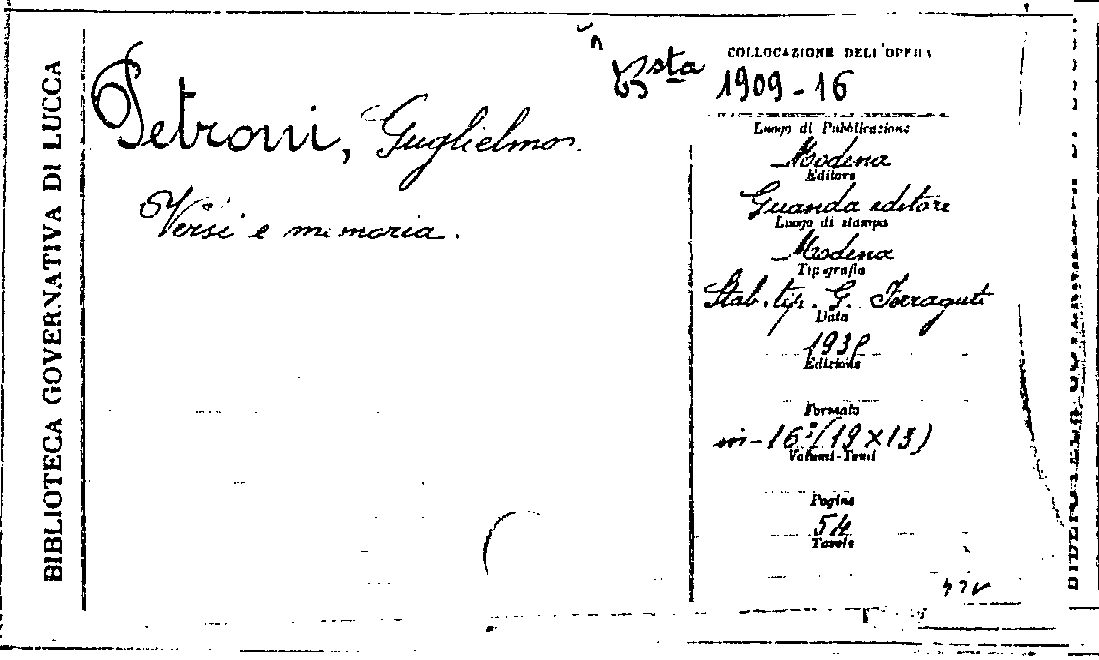 BIBLIOTECA GOVERNATIVA DI LUCCA
Petroni, Guglielmo.
Versi e memoria.
Bsta
COLLOCAZIONE DELL'OPERA
1909-16
Luogo di Pubblicazione
Modena
Editore
Guanda editore
Luogo di stampa
Modena
Tipografia
Stab. tip. G. Ferraguti
Data
Edizione
Formato
in-16°(19x13)
Volumi-Tomi
Pagine
54
Tavole